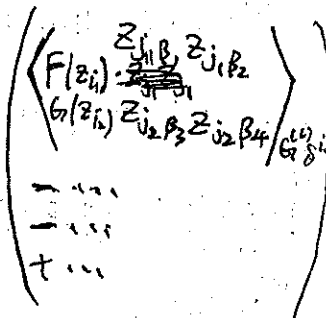 ( ⟨ F(z_{i_1}) · z_{j_1 β_1} z_{j_1 β_2}
G(z_{i_2}) z_{j_2 β_3} z_{j_2 β_4} ⟩
- ...
- ...
+ ... )